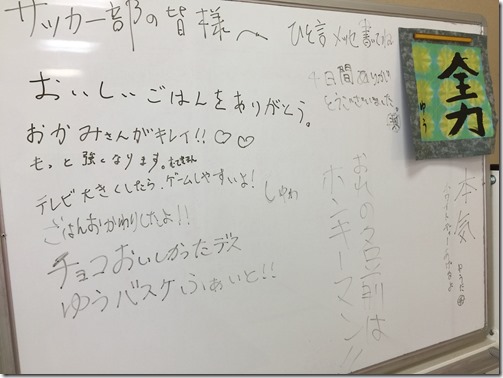 サッカー部の皆様へ
ひと言メッセ書い
4日間ありがとう
ございました。
おいしいごはんをありがとう。
おかみさんがキレイ!!♡♡
もっと強くなります。
テレビ大きくしたら、ゲームしやすいよ!
しゅわ
ごはんおかわりしたよ!!
チョコおいしかったデス
ゆうバスケふぁいと!!
おれの名前は
ホンキーマン!!
本気
全力
ゆう